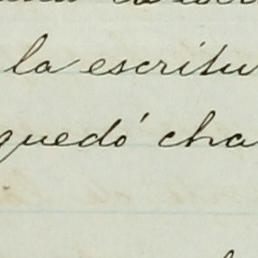 la escritu
quedó cha